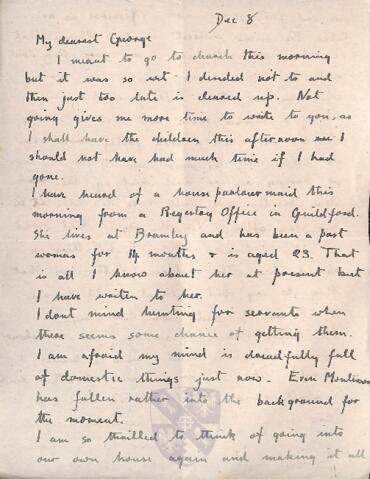 Dec 8
My dearest George
I meant to go to church this morning
but it was so wet I decided not to and
then just too late it cleared up. Not
going gives me more time to write to you, as
I shall have the children this afternoon and I
should not have had much time if I had
gone.
I have heard of a house parlourmaid this
morning from a Registry Office in Guildford.
She lives at Bramley and has been a post
woman for 14 months & is aged 23. That
is all I know about her at present but
I have written to her.
I dont mind hunting for servants when
there seems some chance of getting them.
I am afraid my mind is dreadfully full
of domestic things just now. Even
has fallen rather into the background for
the moment.
I am so thrilled to think of going into
our own house again and making it all